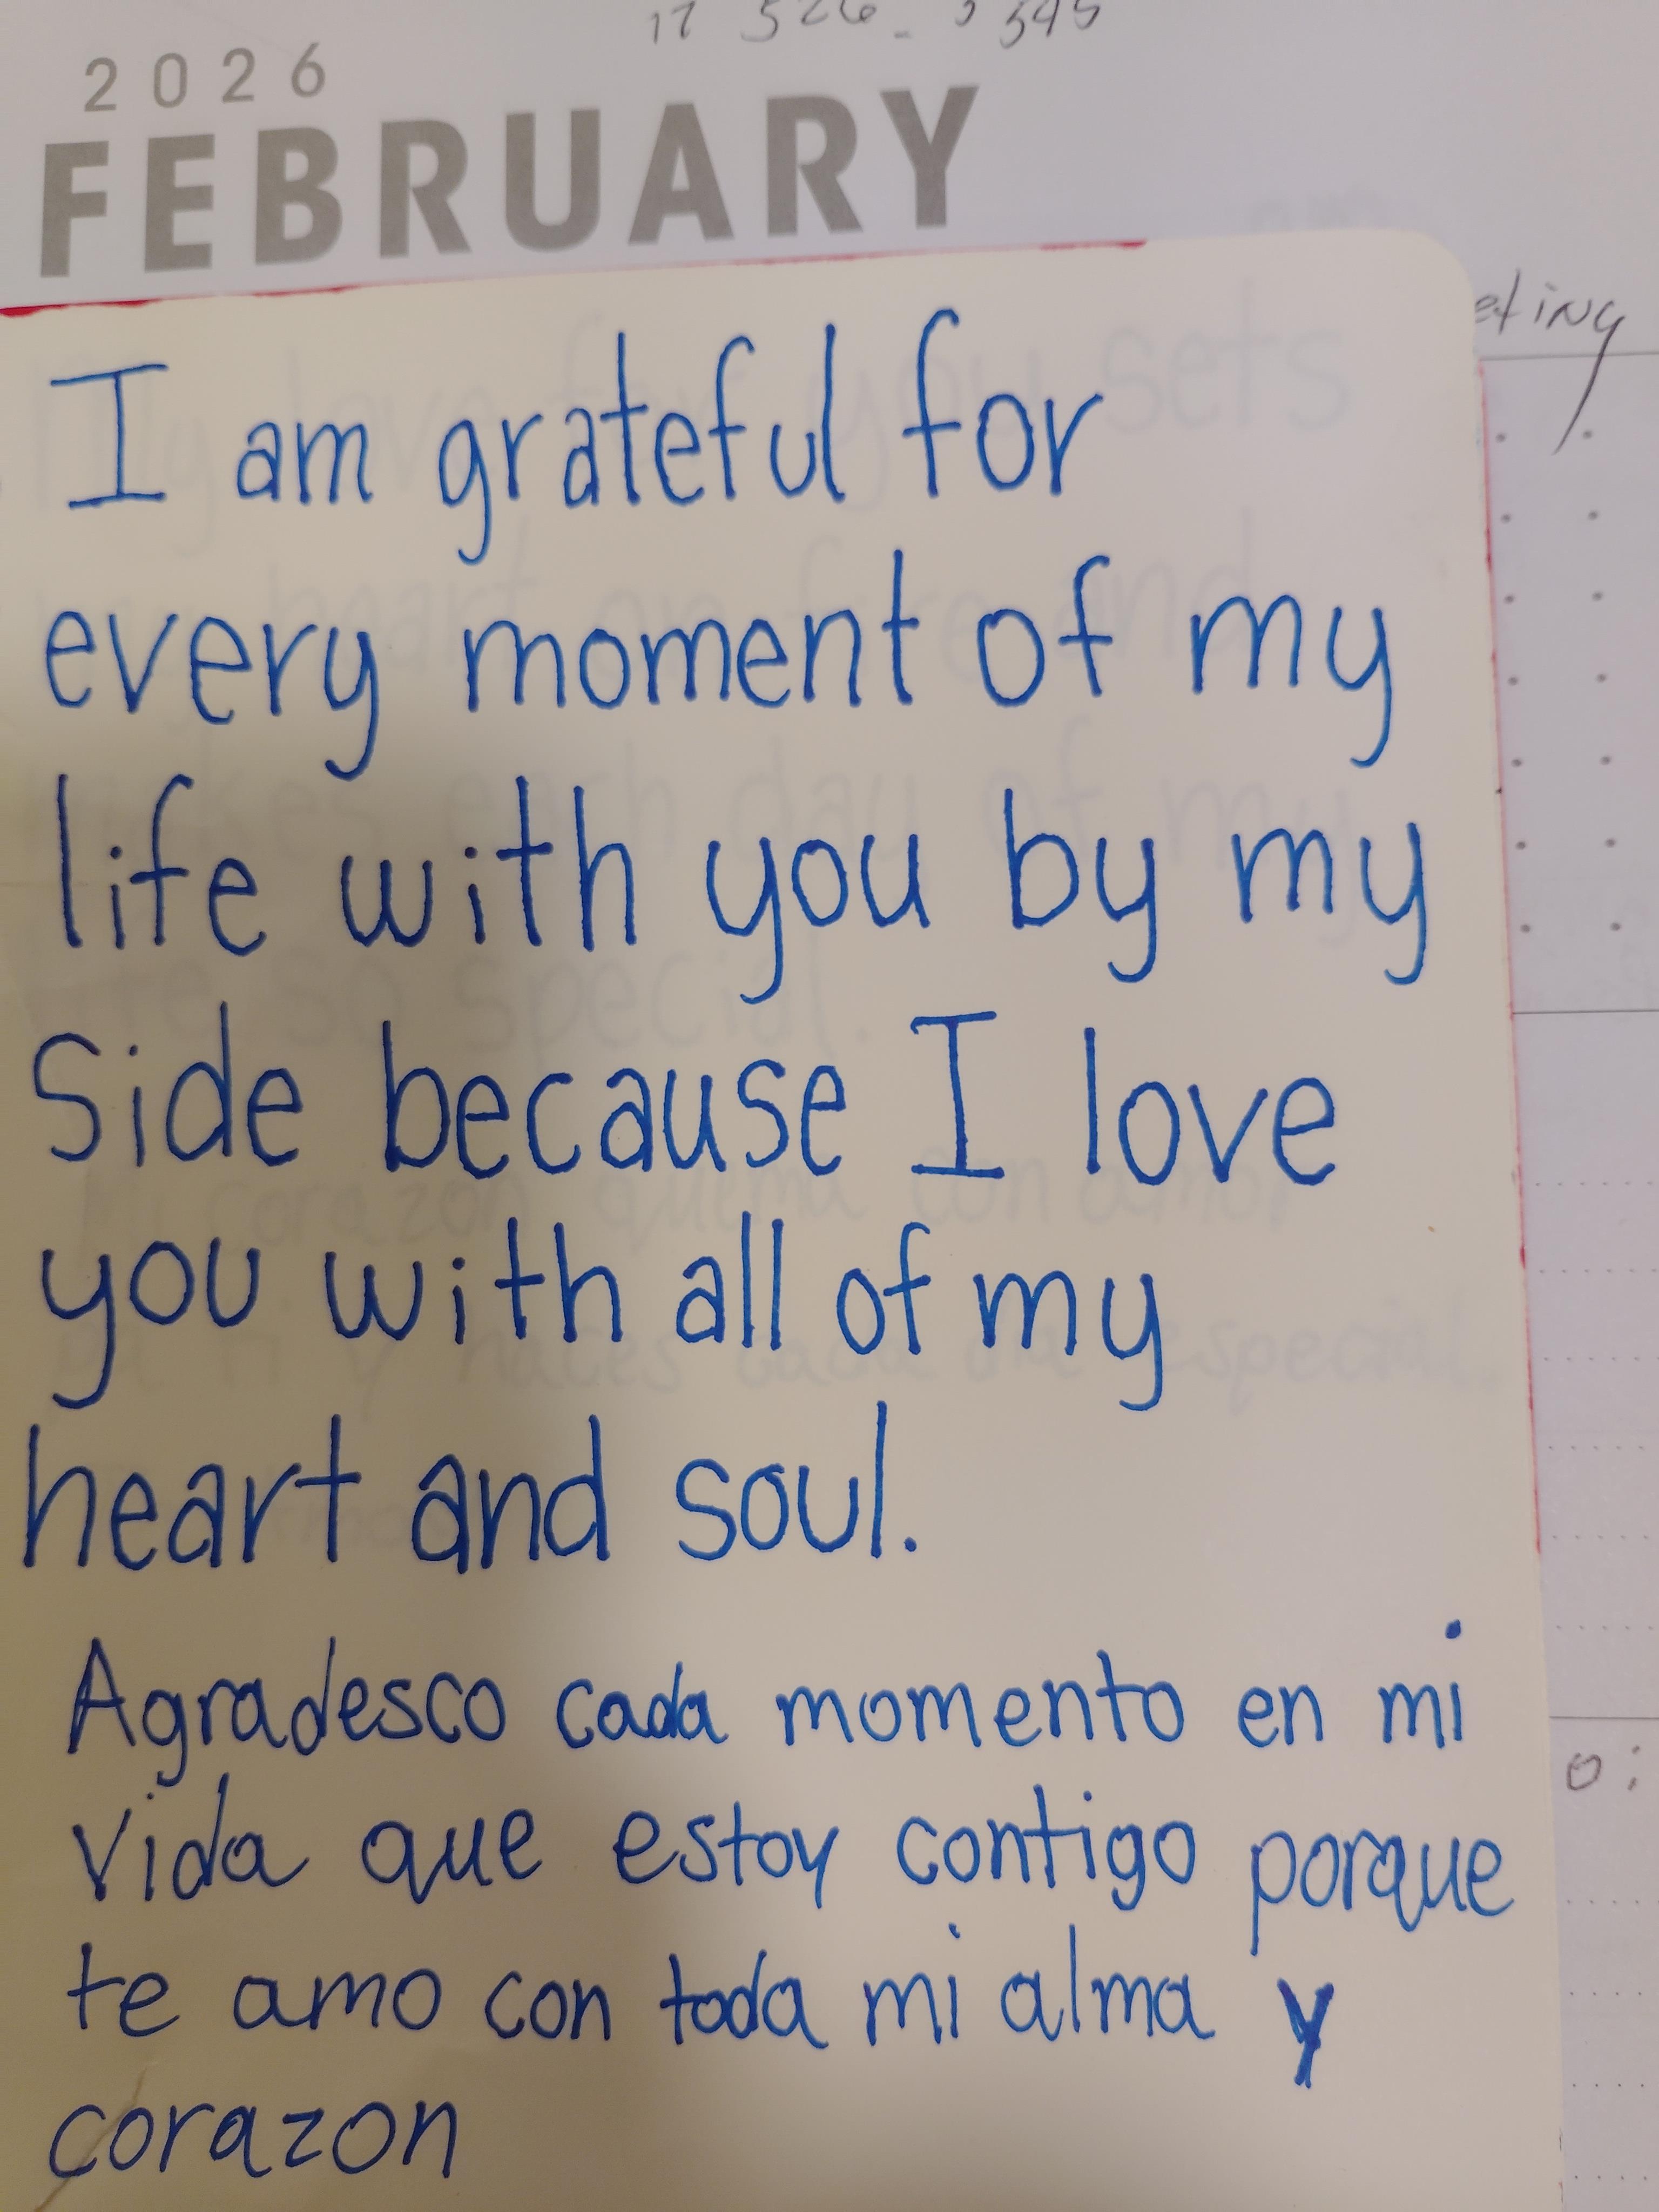 2026
FEBRUARY
I am grateful for
every moment of my
life with you by my
Side because I love
you with all of my
heart and soul.
Agradesco cada momento en mi
vida que estoy contigo porque
te amo con toda mi alma y
corazon